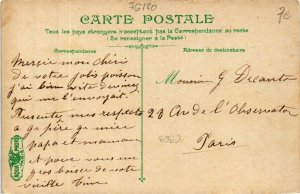 7G120
7e
CARTE POSTALE
Tous les pays étrangers n'acceptent pas la Correspondance au recto
(Se renseigner à la Poste)
Correspondance
Adresse du destinataire
Merci mon chéri
de votre joli poisson
j'ai bien vite deviné
qui me l'envoyait.
Présentez mes respects
à gd père gd mère
papa et maman
et pour vous un
gros baiser de votre
vieille
Monsieur G Decanta
23 Av de l'Observatoire
Paris
6962